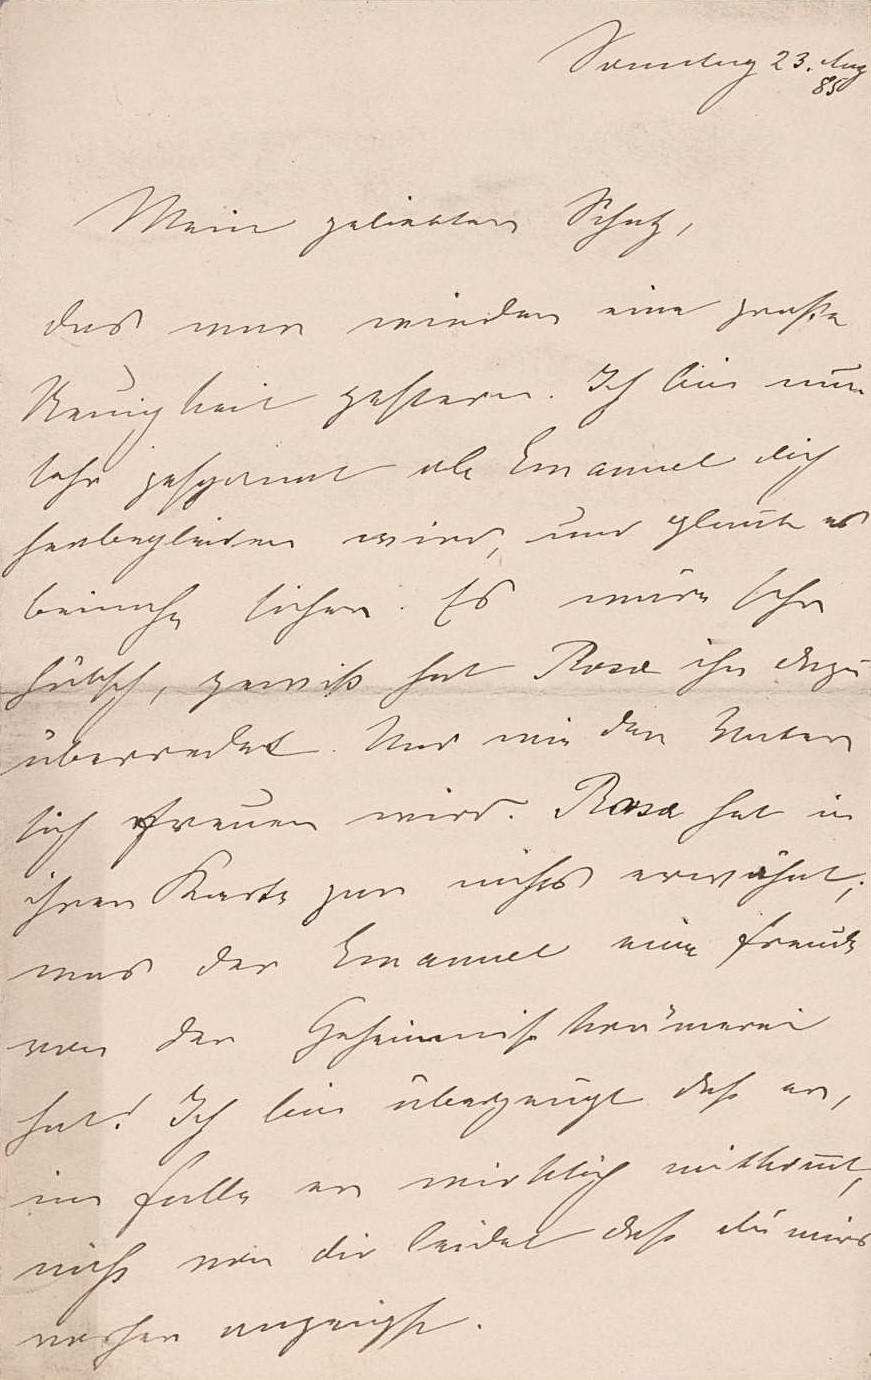 Sonntag 23. Aug
85
Mein geliebter Schatz,
das war wieder eine große
Neuigkeit gestern. Ich bin nun
sehr gespannt ob Emanuel dich
herbegleiten wird, und glaube es
beinahe sicher. Es wäre sehr
hübsch, gewiß hat Rosa ihn dazu
überredet. Und wie der Vater
sich freuen wird. Rosa hat in
ihrer Karte gar nichts erwähnt;
was der Emanuel eine Freude
von der Geheimnißkrämerei
hat! Ich bin überzeugt daß er,
im Falle er wirklich mitkomt,
nicht von dir leidet daß du mirs
vorher anzeigst.